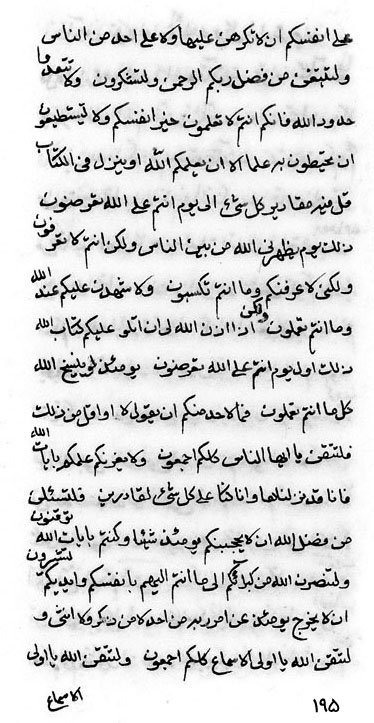 على انفسكم ان لا تكرهن عليها ولا على احد من الناس
ولتبتغن من فضل ربكم الرحمن ولتشكرون ولا تتعدوا
حدود الله فانكم انتم لا تعلمون خير انفسكم ولا تستطيعون
ان تحيطون به علما الا ان يعلمكم الله او ينزل في الكتاب
قل فيه مقادير كل شئ الى يوم انتم على الله تعرضون
ذلك يوم يظهرني الله من بين الناس ولكن انتم لا تعرفون
ولكني لاعرفنكم وما انتم تكسبون ولا شهدن عليكم عند الله
وما انتم تعملون ولكني اذا اذن الله لى ان اتلو عليكم كتاب الله
ذلك اول يوم انتم على الله تعرضون يومئذ الله
كل ما انتم تعملون فما لاحد منكم ان يقول لا او اقل من ذلك
فلتتقن يا ايها الناس كلكم اجمعون ولا يغرنكم علمكم بايات الله
فانا قد نزلناها وانا كنا على كل شئ لمقادرين فلتسئلن
من فضل الله ان لا يحجبنكم يومئذ شيئا وكنتم بايات الله توقنون
ولتنصرن الله من الى ما انتم اليهم بانفسكم وايديكم
ان لا يخرج يومئذ عن امر ربه من احد لا من ذكر ولا انثى و
لتتقن الله يا اولى الاسماع كلكم اجمعون ولتتقن الله يا اولى
الاسماع
١٩۵